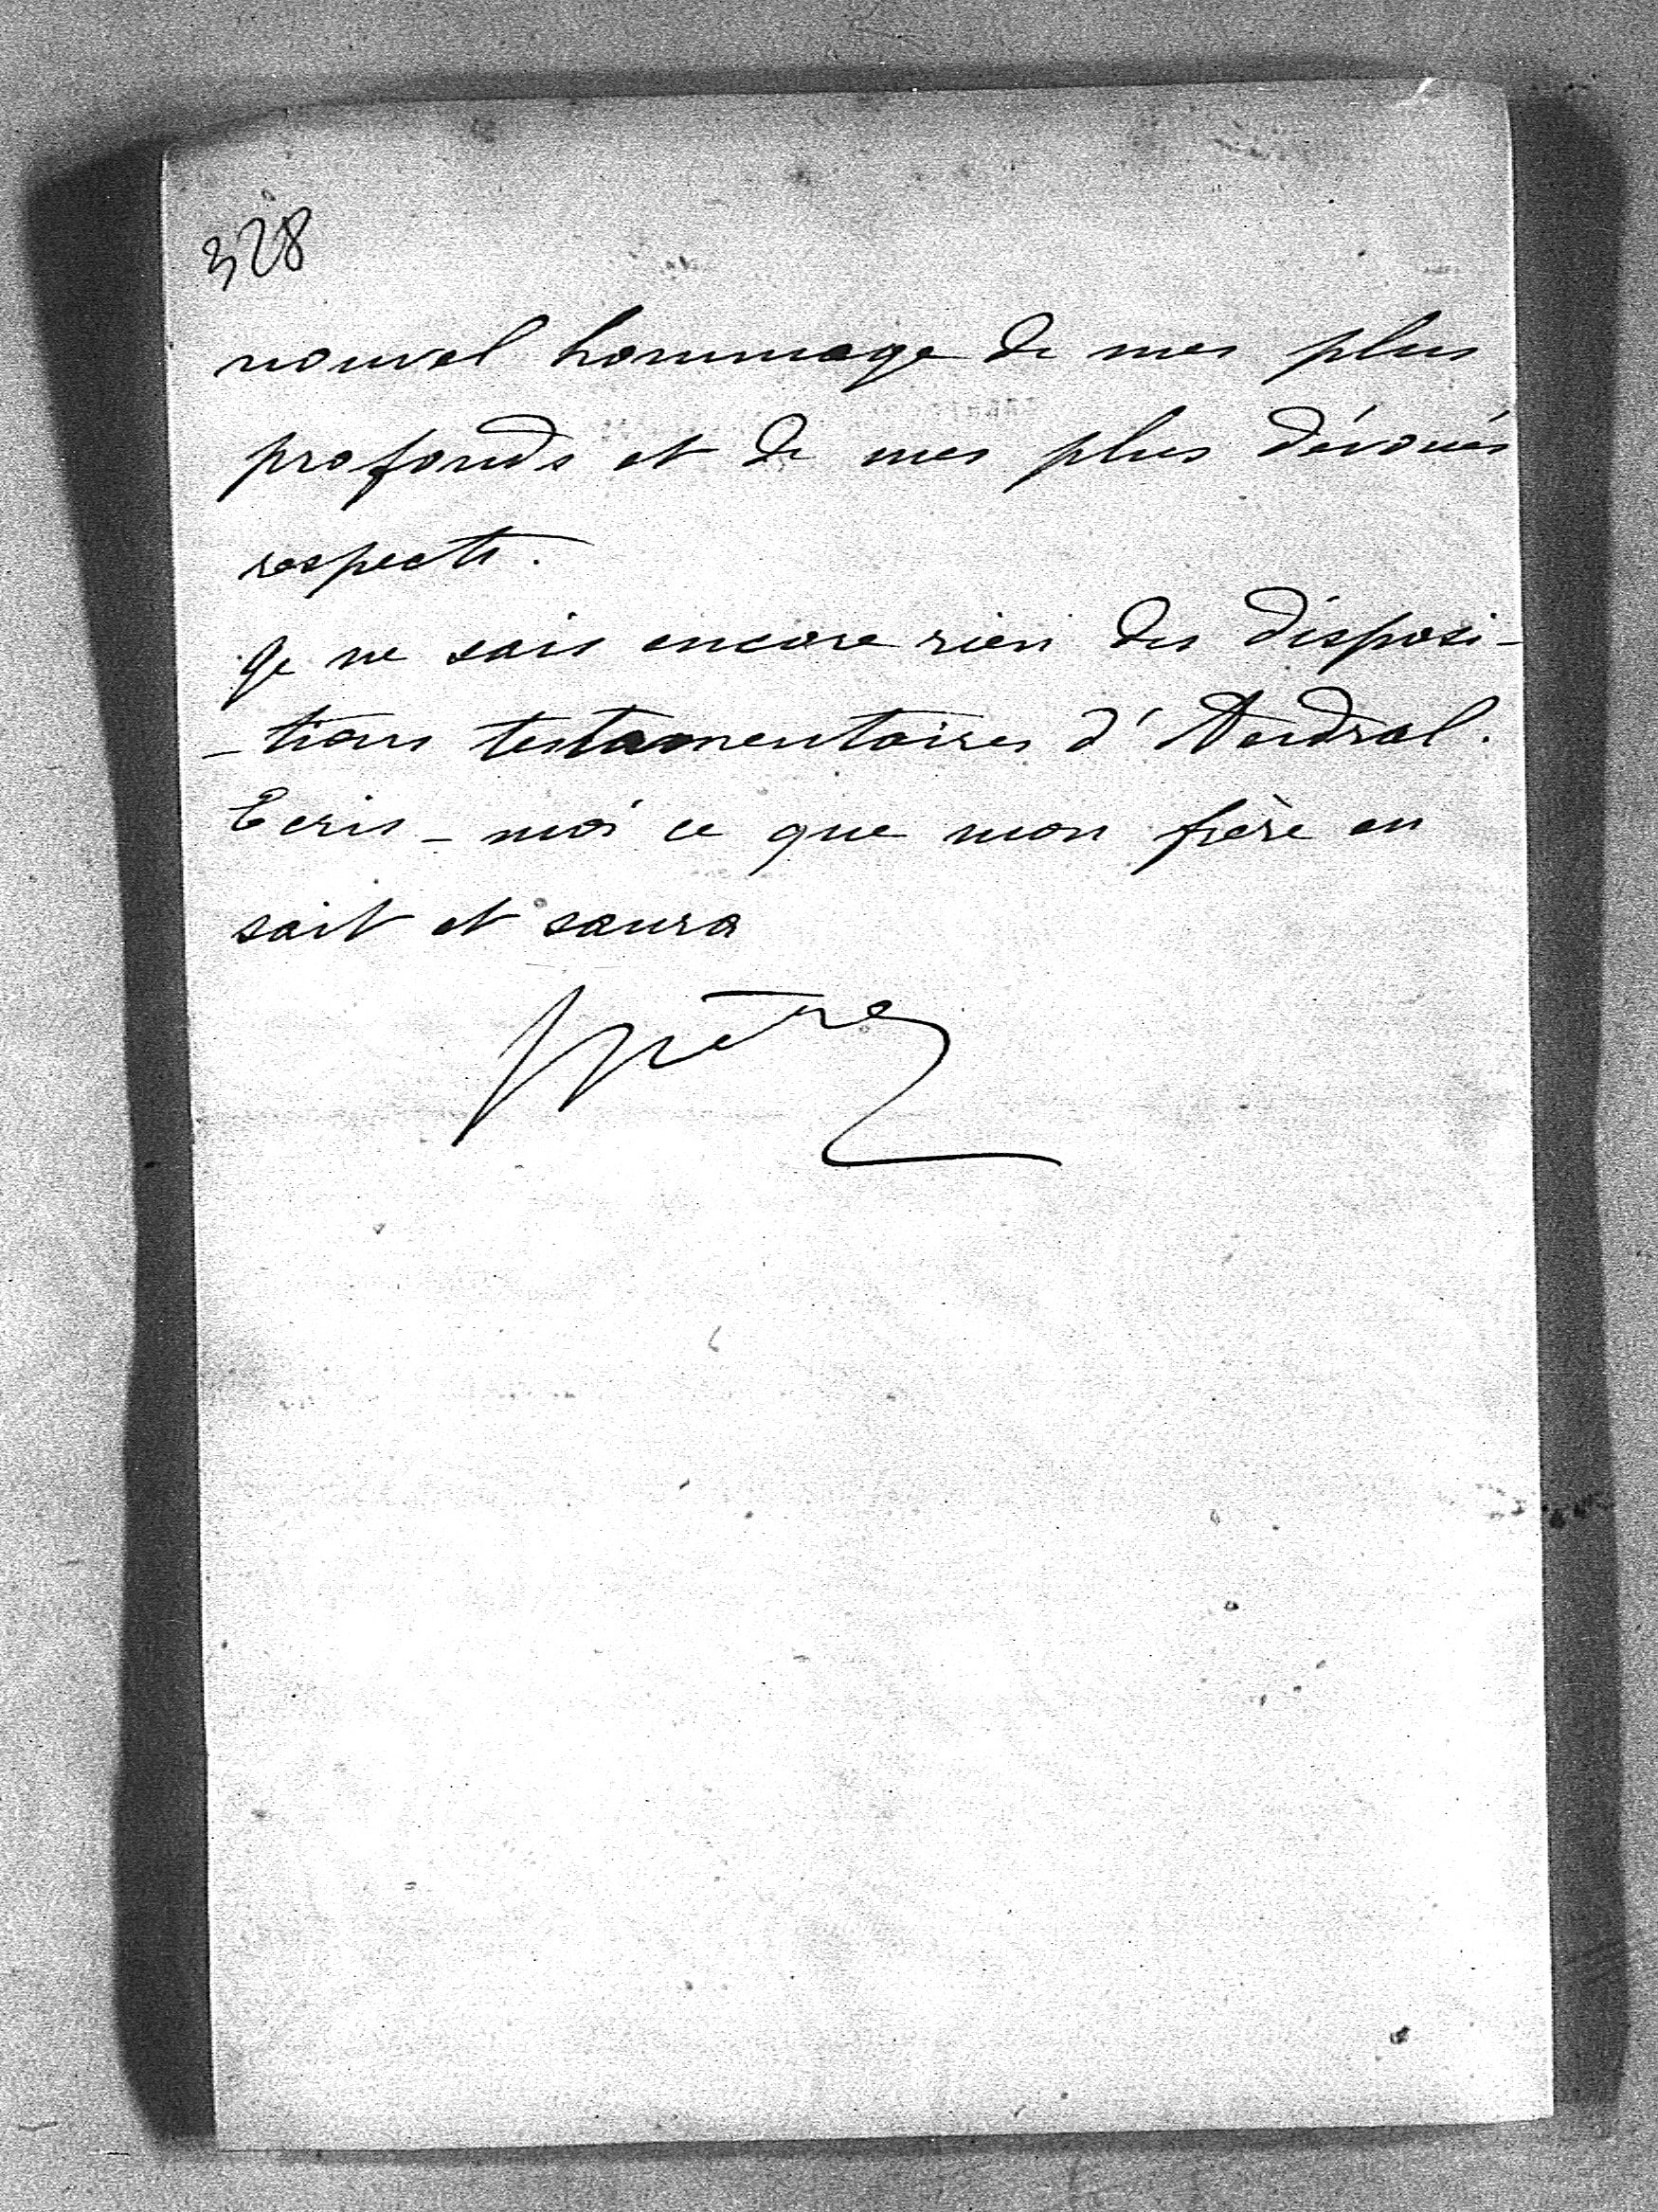 328
nouvel hommage de mes plus
profonds et de mes plus dévoués
respects.
Je ne sais encore rien des disposi-
-tions testamentaires d'Andral.
Ecris-moi ce que mon frère en
sait et saura